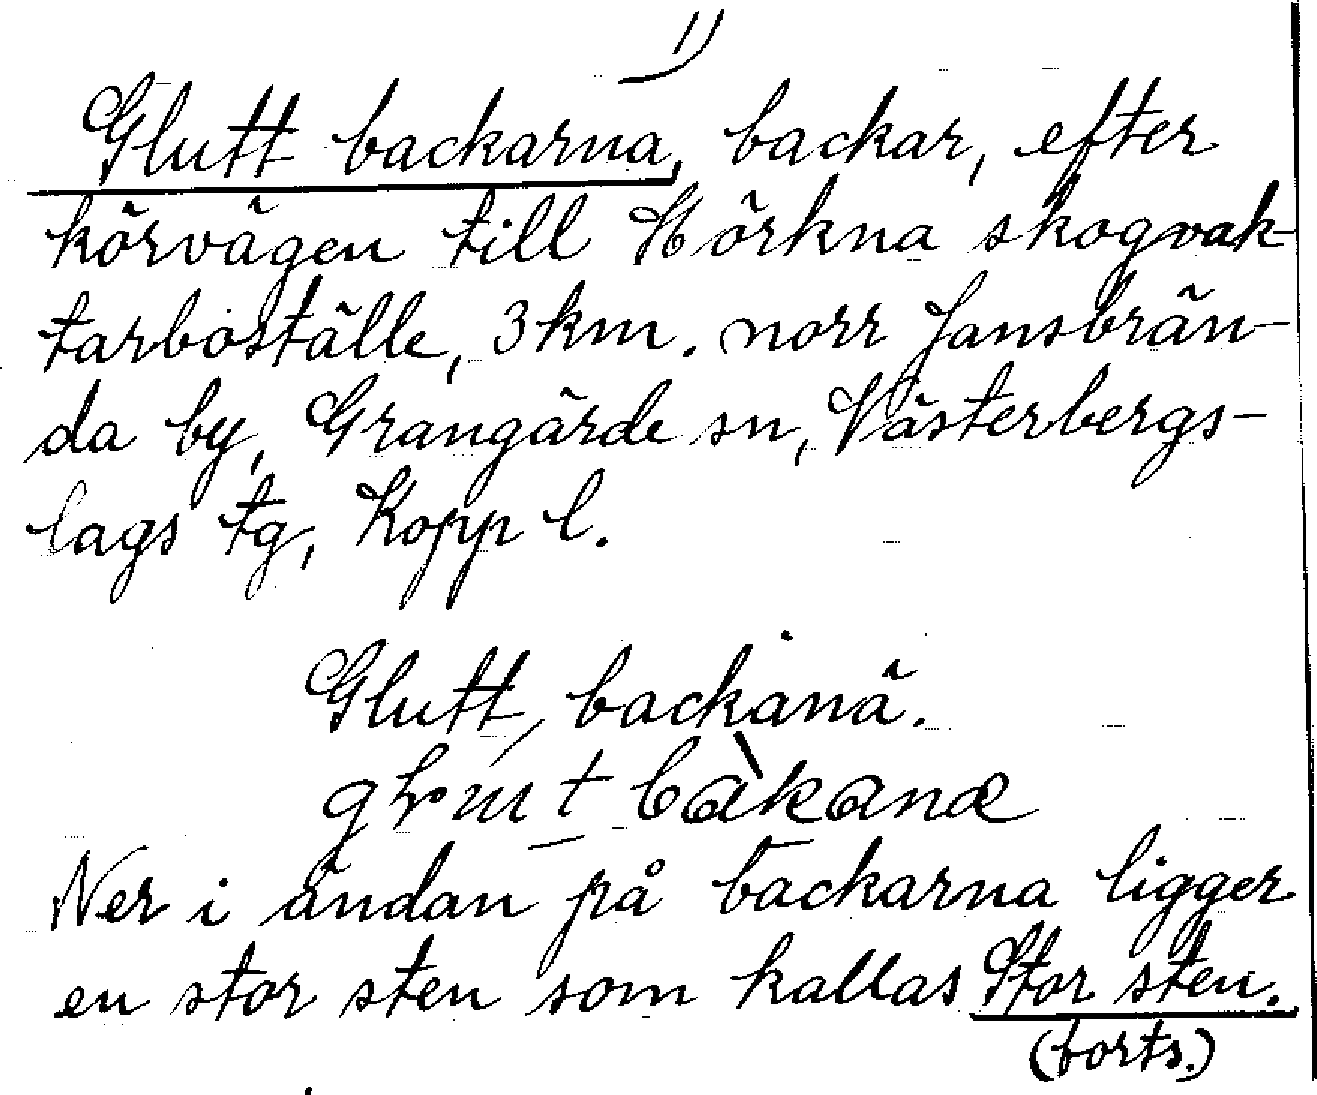 1)
Glutt backarna, backar, efter
körvägen till Hörkna skogvak-
tarboställe, 3 km. norr Jansbrän-
da by, Grangärde sn, Västerbergs-
lags tg, Kopp l.
Glutt, backanä.
bàkanæ
Ner i ändan på backarna ligger
en stor sten som kallas Stor sten.
(forts.)